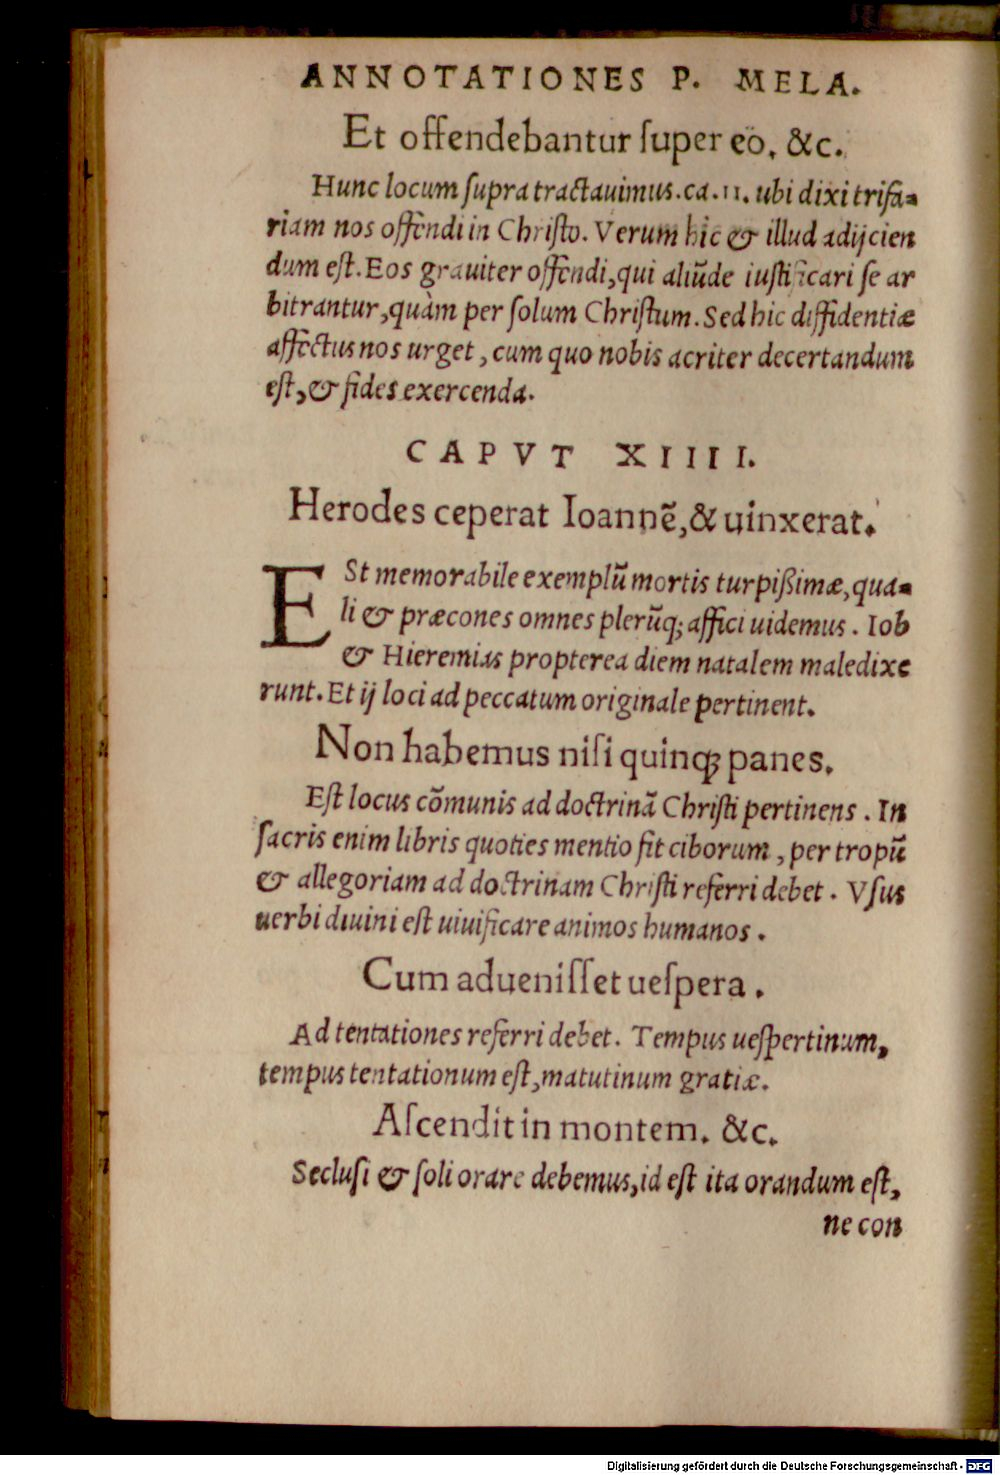 ANNOTATIONES P. MELA.
Et offendebantur ſuper eo, &c.
Hunc locum ſupra tractauimus.ca.11. ubi dixi trifa-
riam nos offendi in Chriſto. Verum hic & illud adijcien
dum eſt. Eos grauiter offendi, qui aliũde iuſtificari ſe ar
bitrantur, quàm per ſolum Chriſtum. Sed hic diffidentiæ
affectus nos urget, cum quo nobis acriter decertandum
eſt, & fides exercenda.
CAPVT XIIII.
Herodes ceperat Ioannẽ, & uinxerat.
ESt memorabile exemplũ mortis turpißimæ, qua-
li & præcones omnes plerũq; affici uidemus. Iob
& Hieremias propterea diem natalem maledixe
runt. Et ij loci ad peccatum originale pertinent.
Non habemus niſi quinq; panes.
Eſt locus cõmunis ad doctrinã Chriſti pertinens. In
ſacris enim libris quoties mentio fit ciborum, per tropũ
& allegoriam ad doctrinam Chriſti referri debet. Vſus
uerbi diuini eſt uiuificare animos humanos.
Cum adueniſſet ueſpera.
Ad tentationes referri debet. Tempus ueſpertinum,
tempus tentationum eſt, matutinum gratiæ.
Aſcendit in montem. &c.
Secluſi & ſoli orare debemus, id eſt ita orandum eſt,
ne con
Digitalisierung gefördert durch die Deutsche Forschungsgemeinschaft - DFG